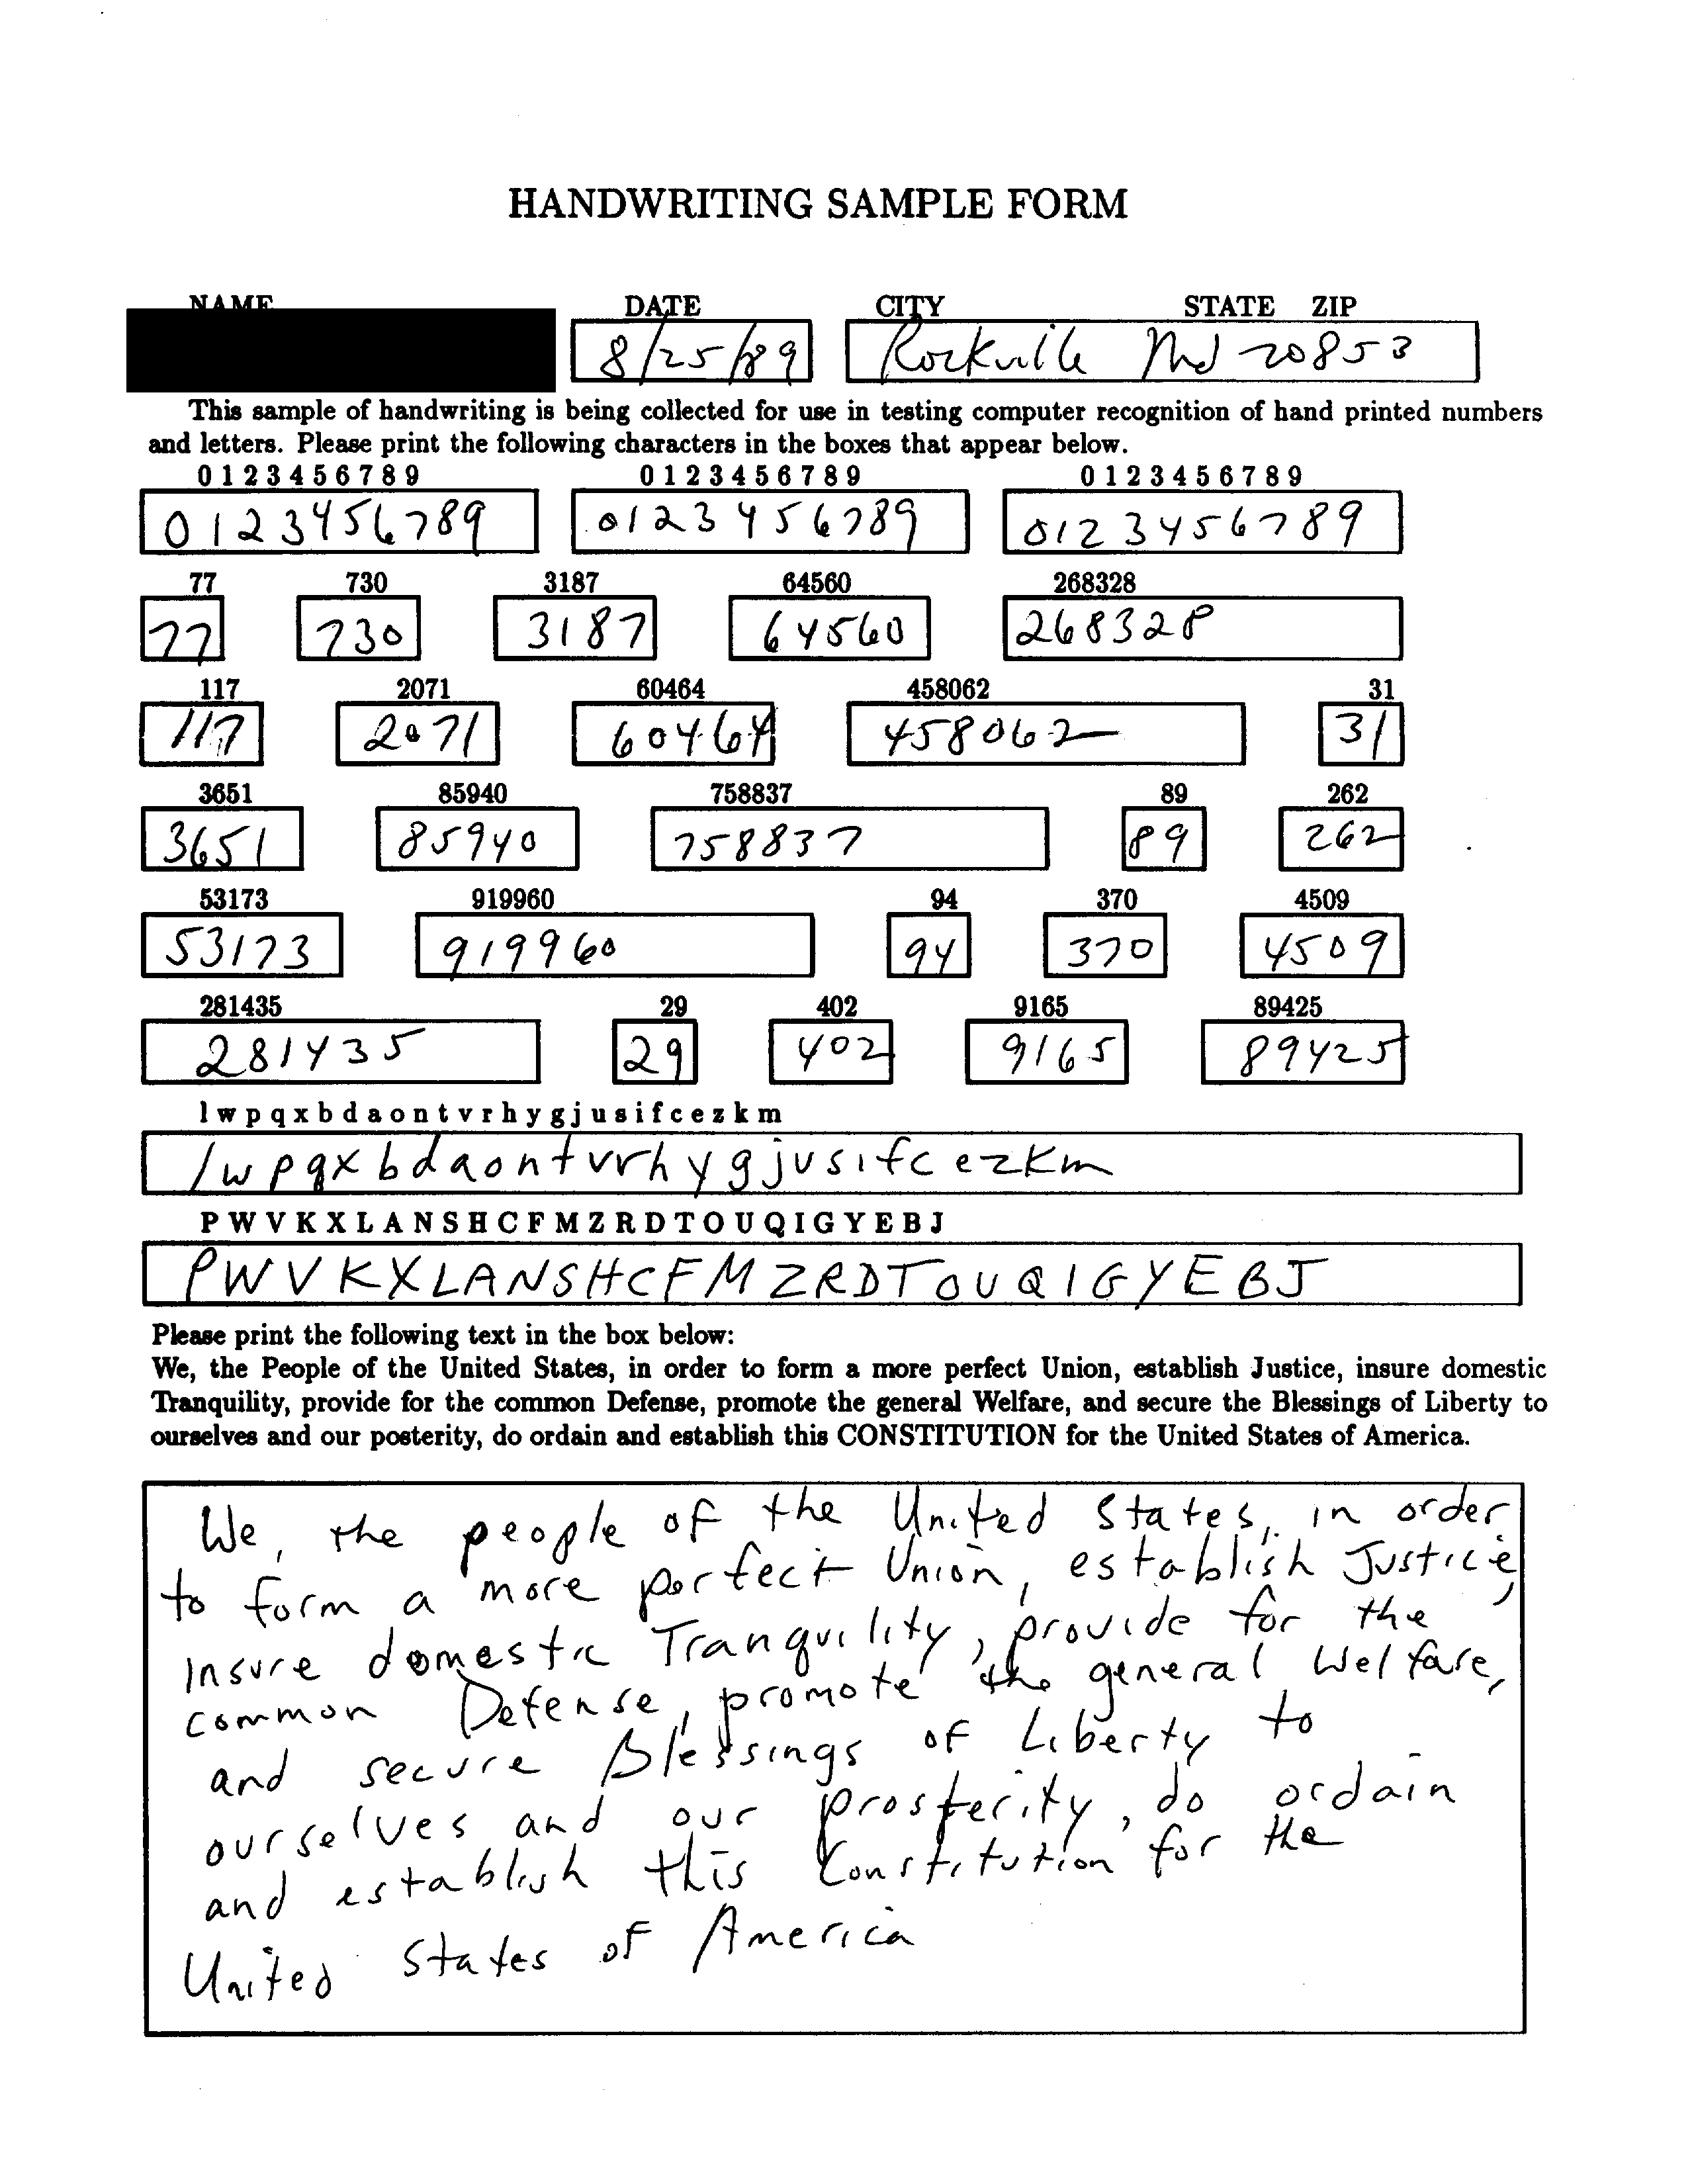 HANDWRITING SAMPLE FORM
NAME DATE CITY STATE ZIP
8/25/89 Rockville Md 20853
This sample of handwriting is being collected for use in testing computer recognition of hand printed numbers
and letters. Please print the following characters in the boxes that appear below.
0 1 2 3 4 5 6 7 8 9 0 1 2 3 4 5 6 7 8 9 0 1 2 3 4 5 6 7 8 9
0123456789 0123456789 0123456789
77 730 3187 64560 268328
77 730 3187 64560 268328
117 2071 60464 458062 31
117 2071 60464 458062 31
3651 85940 758837 89 262
3651 85940 758837 89 262
53173 919960 94 370 4509
53173 919960 94 370 4509
281435 29 402 9165 89425
281435 29 402 9165 89425
l w p q x b d a o n t v r h y g j u s i f c e z k m
l w p q x b d a o n t v r h y g j u s i f c e z k m
P W V K X L A N S H C F M Z R D T O U Q I G Y E B J
P W V K X L A N S H C F M Z R D T O U Q I G Y E B J
Please print the following text in the box below:
We, the People of the United States, in order to form a more perfect Union, establish Justice, insure domestic
Tranquility, provide for the common Defense, promote the general Welfare, and secure the Blessings of Liberty to
ourselves and our posterity, do ordain and establish this CONSTITUTION for the United States of America.
We, the people of the United States, in order
to form a more perfect Union, establish Justice,
insure domestic Tranquility, provide for the
common Defense, promote the general Welfare,
and secure Blessings of Liberty to
ourselves and our prosterity, do ordain
and establish this Constitution for the
United States of America